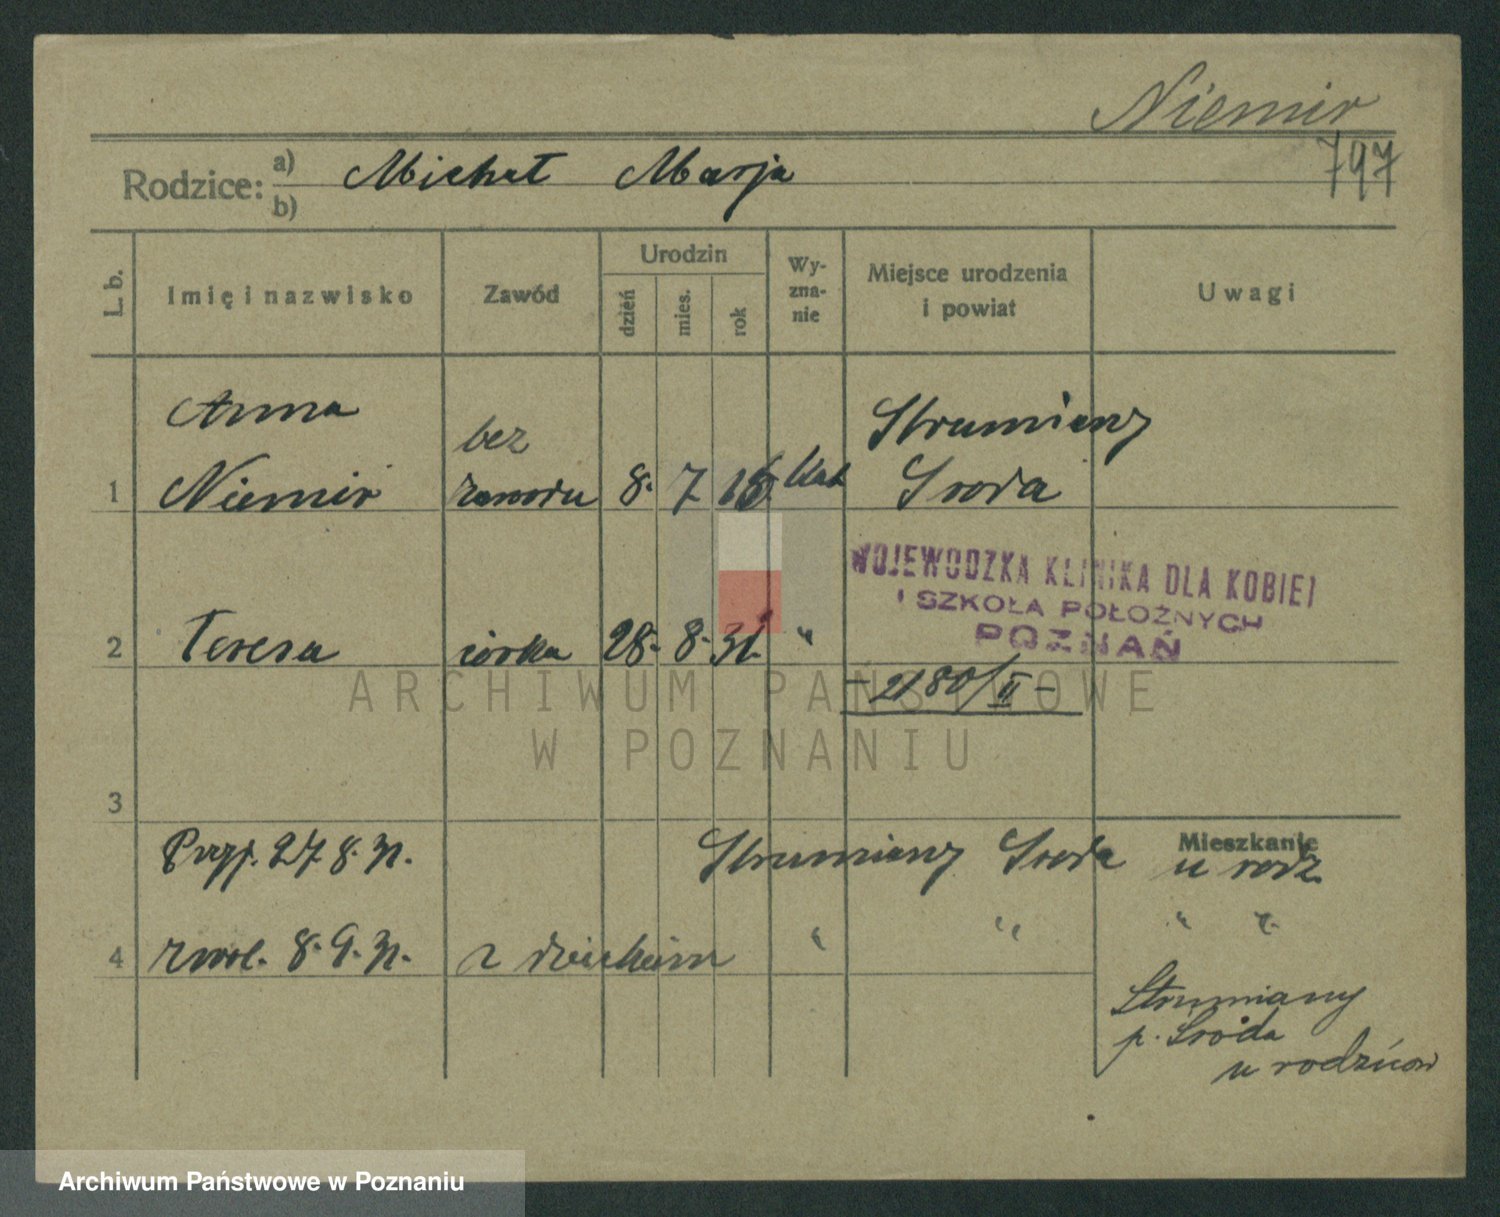 Niemir
797
Rodzice: a) Michał Marja
b)
L. b.
Imię i nazwisko
Zawód
Urodzin
dzień
mies.
rok
Wy-
zna-
nie
Miejsce urodzenia
i powiat
Uwagi
Anna
bez
Strumiany
1 Niemir zawodu 8. 7 kat Sroda
WOJEWODZKA KLINIKA DLA KOBIET
I SZKOŁA POŁOŻNYCH
POZNAŃ
2 Teresa córka 28. 8. 31. "
- 2180/II -
ARCHIWUM PAŃSTWOWE
W POZNANIU
3
Mieszkanie
Przyj. 27. 8. 31. Strumiany Sroda u rodz.
" "
4 zwol. 8. 9. 31. z dzieckiem " "
Strumiany
p. Sroda
u rodziców
Archiwum Państwowe w Poznaniu